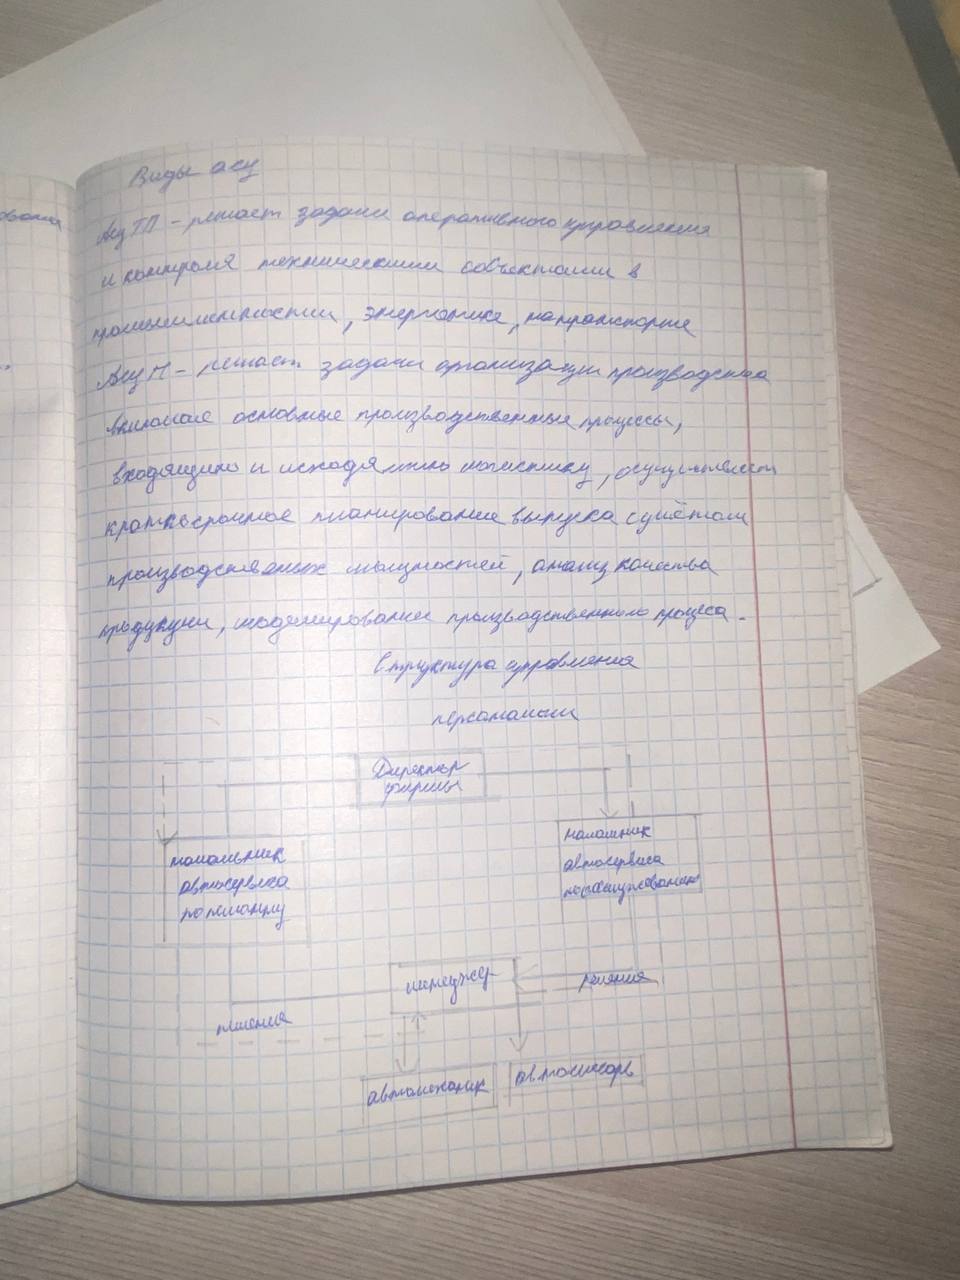 Виды асу
Асу ТП - решает задачи оперативного управления
и контроля техническими объектами в
промышленности, энергетике, на транспорте
Асу П - решает задачи организации производства
включая основные производственные процессы,
входящую и исходящую логистику, осуществляет
краткосрочное планирование выпуска с учётом
производственных мощностей, анализ качества
продукции, моделирование производственного процеса.
Структура управления
персоналом
Директор
фирмы
начальник
автосервиса
по ремонту
начальник
автосервиса
менеджер
решения
решения
автомеханик
автослесарь